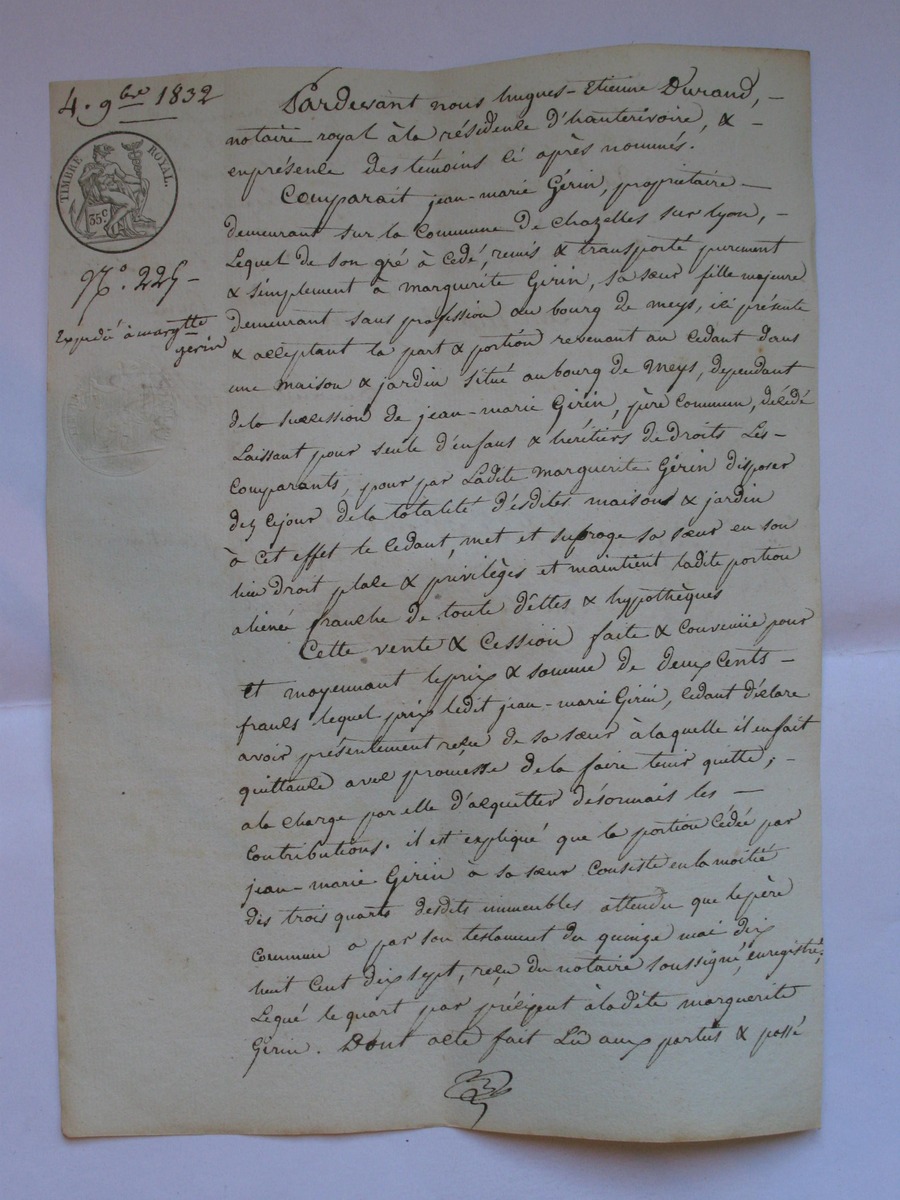 4. 9bre 1832
TIMBRE ROYAL.
35c
No. 225
Expédié à margtte
gerin
Pardevant nous hugues-Etienne Durand,
notaire royal à la résidence d'hauterivoire, &
en présence des témoins ci après nommés.
Comparait jean-marie Gérin, propriétaire
demeurant sur la Commune de Chazelles sur lyon,
Lequel de son gré à Cedé, remis & transporté purement
& simplement à marguerite Girin, sa sœur fille majeure
demeurant sans profession au bourg de meys, ici présente
& acceptant la part & portion revenant au Cedant dans
une maison & jardin situé au bourg de meys, dependant
de la succession de jean-marie Girin, père Commun, décédé
Laissant pour seuls d'enfans & héritiers de droits Les
Comparants, pour par Ladite marguerite Gérin disposer
dez ce jour de la totalité d'esdites maisons & jardin
à Cet effet le Cedant, met et subroge sa sœur en son
lieu Droit place & privilèges et maintient ladite portion
alienée franche de toute dêttes & hypothèques
Cette vente & Cession faite & Convenüe pour
et moyennant le prix & somme de deux Cents
francs lequel prix ledit jean-marie Girin, Cedant déclare
avoir présentement reçu de sa sœur à laquelle il en fait
quittance avec promesse de la faire tenir quitte,
a la Charge par elle d'acquitter désormais les
Contributions. il est expliqué que la portion Cédée par
jean-marie Girin à sa sœur Consiste en la moitié
des trois quarts desdits immeubles attendu que le père
Commun a par son testament du quinze mai dix
huit Cent dix sept, reçu du notaire soussigné, enregistré,
Legué le quart par préciput à ladite marguerite
Gérin. Dont acte fait Lû aux parties & passé